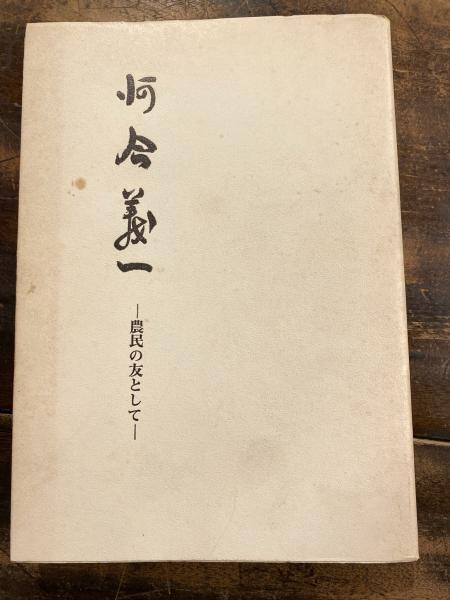 河合義一
―農民の友として―